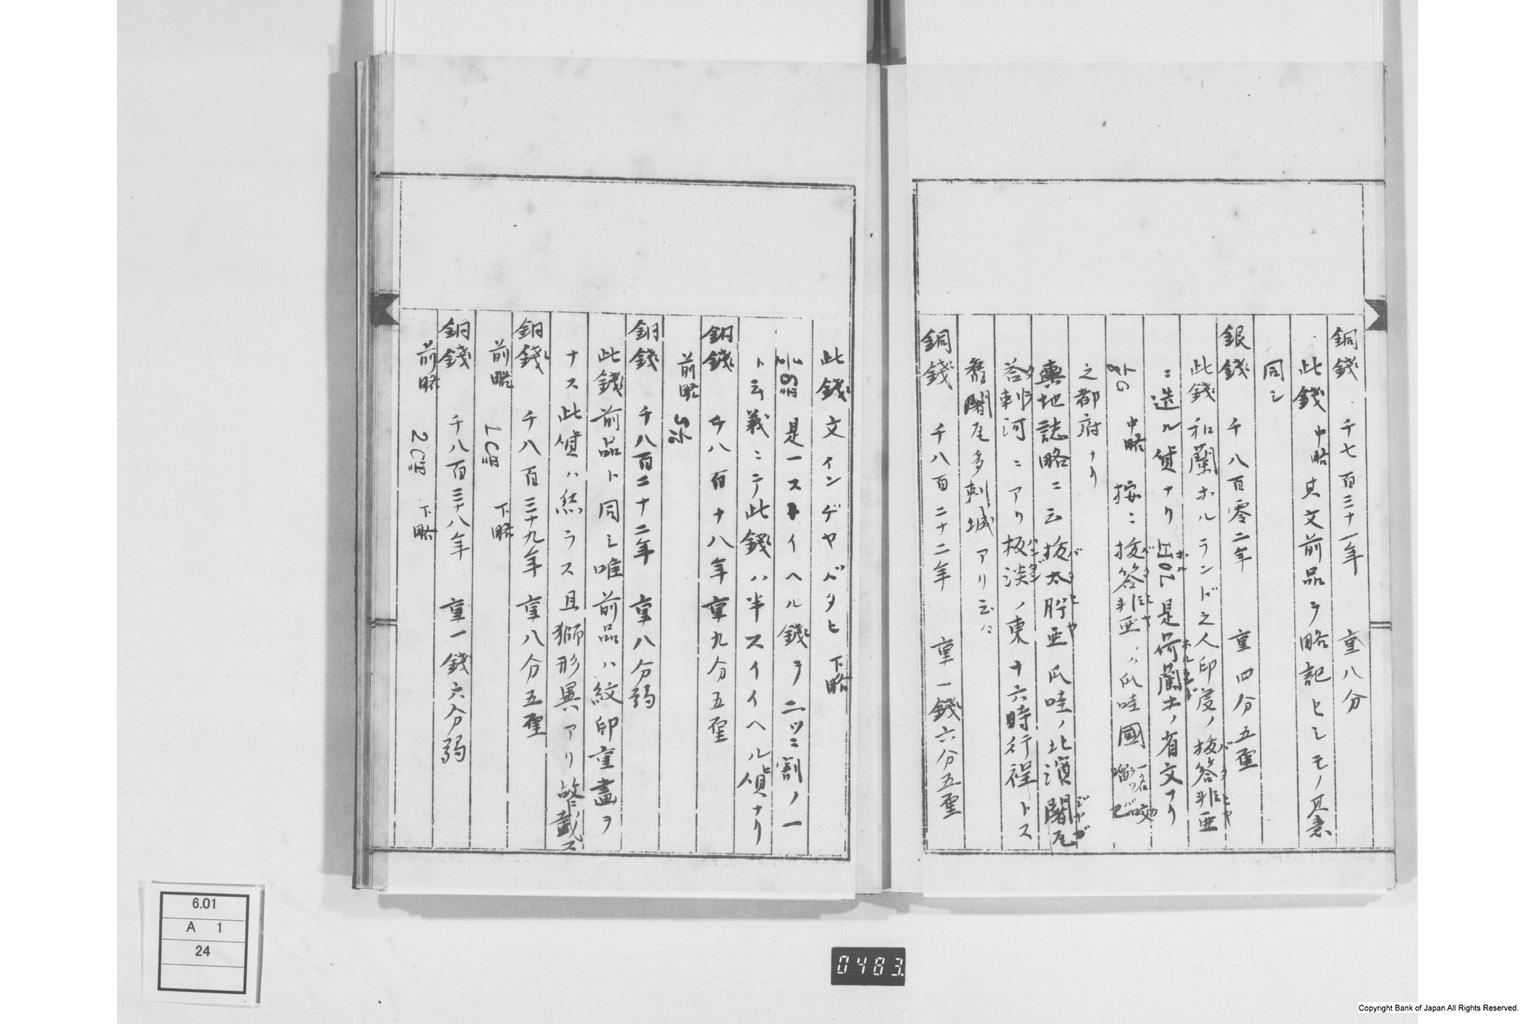 銅錢 千七百三十一年 重八分
此錢 中略 其文前品ヲ略記セシモノ其裏
同シ
銀錢 千八百零二年 重四分五厘
此錢和蘭ホルランド之人印度ノ抜答非亜
ニ造ル貨ナリ HOL 是荷蘭土ノ省文ナリ
中略 按ニ抜答非亜ハ爪哇國
之都府ナリ
輿地誌略ニ云抜太肝亜爪哇ノ北濱闍瓦
荅刺河ニアリ板淡ノ東十六時行程トス
舊闍瓦多刺城アリ云々
銅錢 千八百二十二年 重一錢六分五厘
此錢文インデヤバタヒ 下略
是一ストイヘル錢ヲ二ツニ割ノ一
ト云義ニテ此錢ハ半スイイヘル貨ナリ
銅錢 千八百十八年 重九分五厘
前略
銅錢 千八百二十二年 重八分弱
此錢前品ト同シ唯前品ハ紋印重畫ヲ
ナス此貨ハ然ラス且獅形異アリ故ニ載ス
銅錢 千八百三十九年 重八分五厘
前略 下略
銅錢 千八百三十八年 重一錢六分弱
前略 下略
6.01
A 1
24
0483
Copyright Bank of Japan All Rights Reserved.